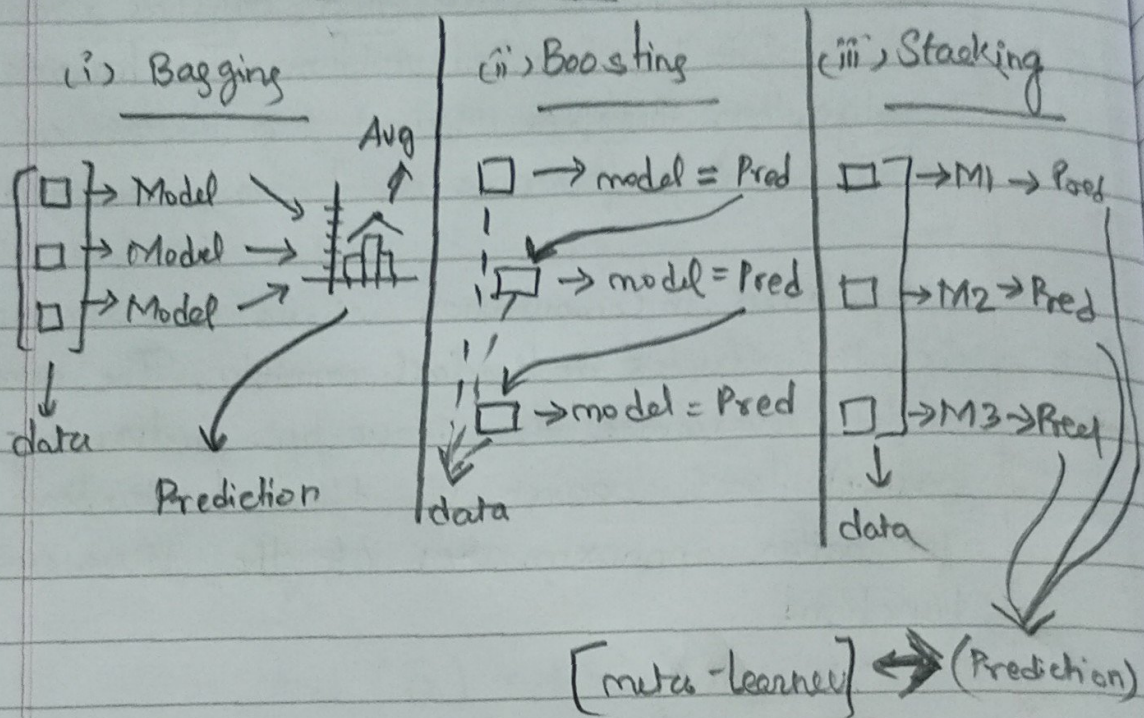 (i) Bagging
Avg
→ Model
→ Model
→ Model
data
Prediction
(ii) Boosting
→ model = Pred
→ model = Pred
→ model = Pred
data
(iii) Stacking
→ M1 → Pred
→ M2 → Pred
→ M3 → Pred
data
[meta-learner] ↔ (Prediction)